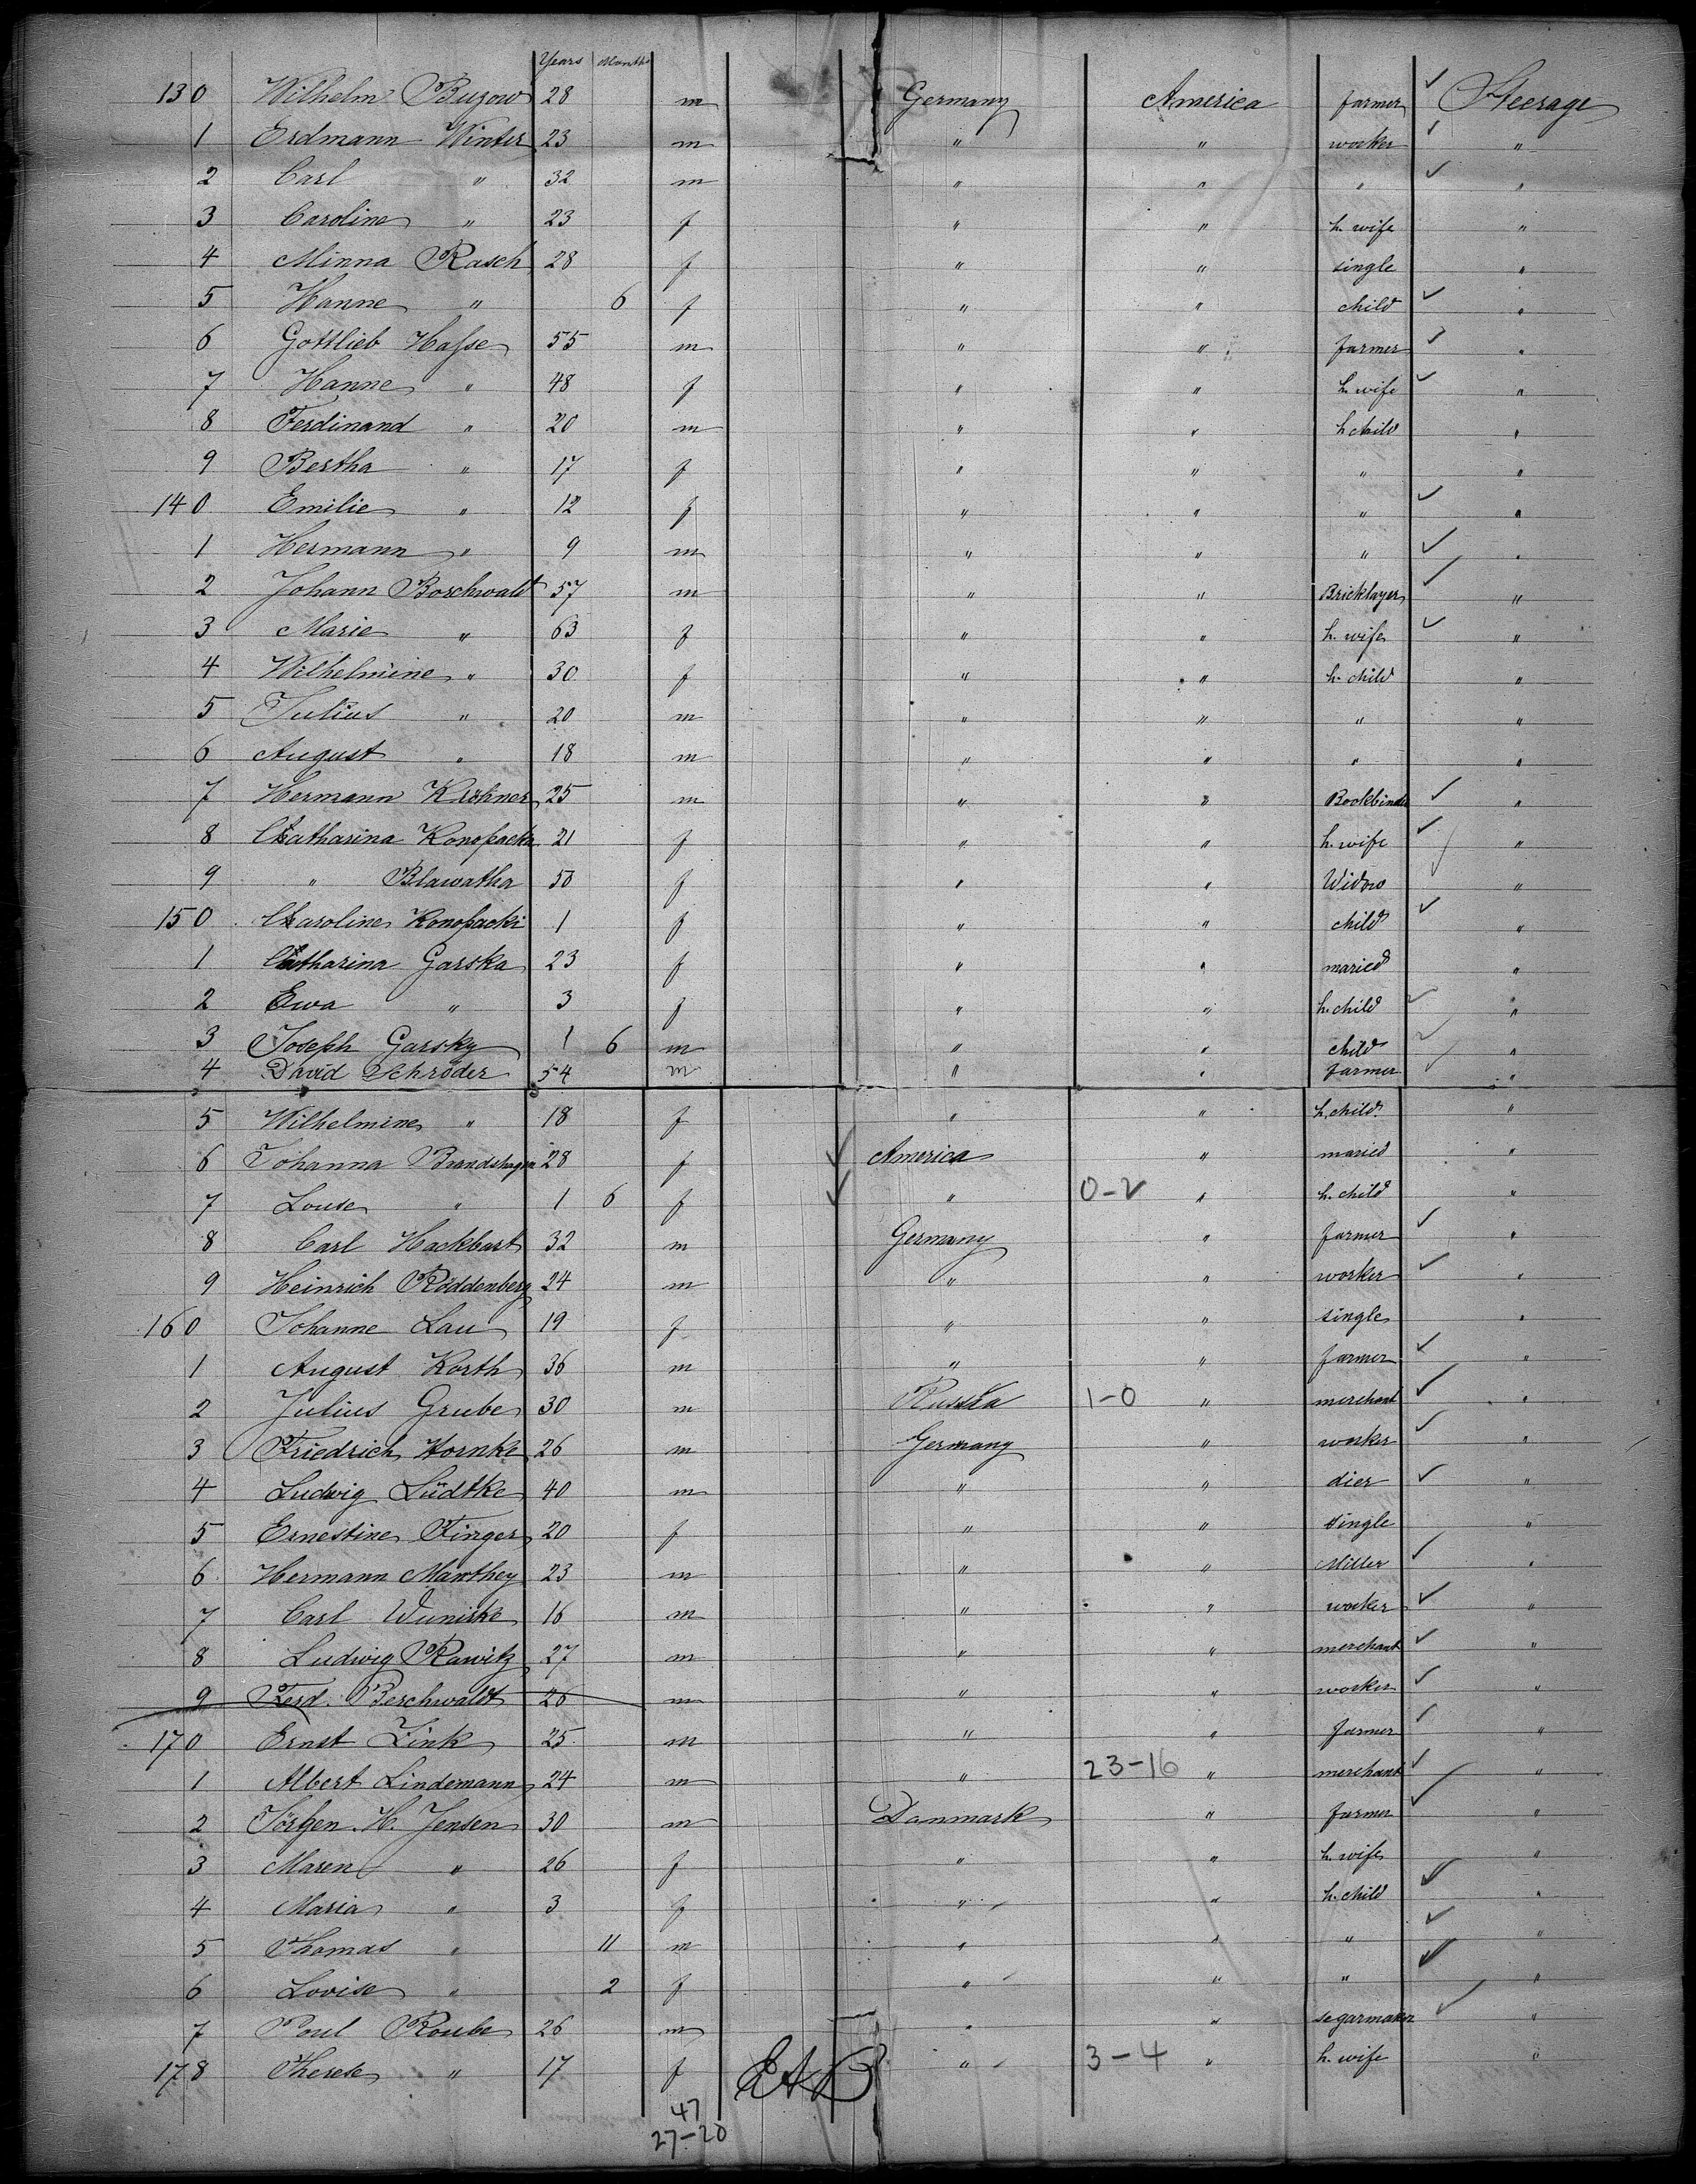 Years Months
130 Wilhelm Buzow 28 m Germany America farmer ✓ Steerage
1 Erdmann Winter 23 m " " worker ✓ "
2 Carl " 32 m " " " ✓ "
3 Caroline " 23 f " " h. wife "
4 Minna Rasch 28 f " " single "
5 Hanne " 6 f " " child ✓ "
6 Gottlieb Hasse 55 m " " farmer ✓ "
7 Hanne " 48 f " " h. wife ✓ "
8 Ferdinand " 20 m " " h child "
9 Bertha " 17 f " " " "
140 Emilie " 12 f " " " ✓ "
1 Hermann " 9 m " " " ✓ "
2 Johann Boschwalt 57 m " " Bricklayer ✓ "
3 Marie " 63 f " " h. wife ✓ "
4 Wilhelmine " 30 f " " h. child "
5 Julius " 20 m " " " "
6 August " 18 m " " " "
7 Hermann Krohner 25 m " " Bookbinder ✓ "
8 Catharina Konopacka 21 f " " h. wife ✓ "
9 " Blawatha 50 f " " Widow ✓ "
150 Caroline Konopacki 1 f " " child ✓ "
1 Catharina Garska 23 f " " maried "
2 Ewa " 3 f " " h. child ✓ "
3 Joseph Garsky 1 6 m " " child ✓ "
4 David Schröder 54 m " " farmer ✓ "
5 Wilhelmine " 18 f " " h. child "
6 Johanna Brandshagen 28 f ✓ America " maried "
7 Louise " 1 6 f ✓ " 0-2 " h. child "
8 Carl Hackbart 32 m Germany " farmer ✓ "
9 Heinrich Röddenberg 24 m " " worker ✓ "
160 Johanne Lau 19 f " " single "
1 August Korth 36 m " " farmer ✓ "
2 Julius Grube 30 m Russia 1-0 " merchant ✓ "
3 Friedrich Hornke 26 m Germany " worker ✓ "
4 Ludwig Lüdtke 40 m " " dier ✓ "
5 Ernestine Finger 20 f " " single "
6 Hermann Manthey 23 m " " Miller ✓ "
7 Carl Wuniske 16 m " " worker ✓ "
8 Ludwig Rawitz 27 m " " merchant ✓ "
9 Ferd. Berschwaldt 26 m " " worker ✓ "
170 Ernst Zink 25 m " " farmer ✓ "
1 Albert Lindemann 24 m " 23-16 " merchant ✓ "
2 Jörgen. H. Jensen 30 m Danmark " farmer ✓ "
3 Maren " 26 f " " h. wife "
4 Maria " 3 f " " h. child ✓ "
5 Thomas " 11 m " " " ✓ "
6 Lovise " 2 f " " " ✓ "
7 Poul Roube 26 m " " segarmaker ✓ "
178 Therese " 17 f " 3-4 " h. wife "
47
27-20